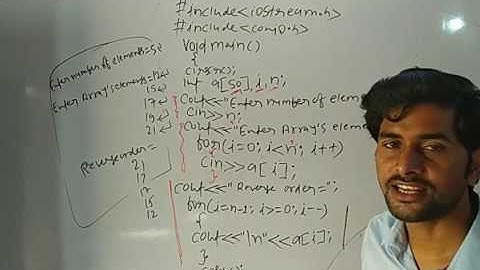 #include<iostream.h>
#include<conio.h>
void main()
{
clrscr();
int a[50], i, n;
cout<<"Enter number of elem
cin>>n;
cout<<"Enter Array's elemen
for(i=0; i<n; i++)
cin>>a[i];
cout<<"Reverse order=";
for(i=n-1; i>=0; i--)
{
cout<<"\n"<<a[i];
}
Enter number of elements=5↵
Enter Array's elements=12↵
15↵
17↵
19↵
21↵
Reverse order=
21
19
17
15
12